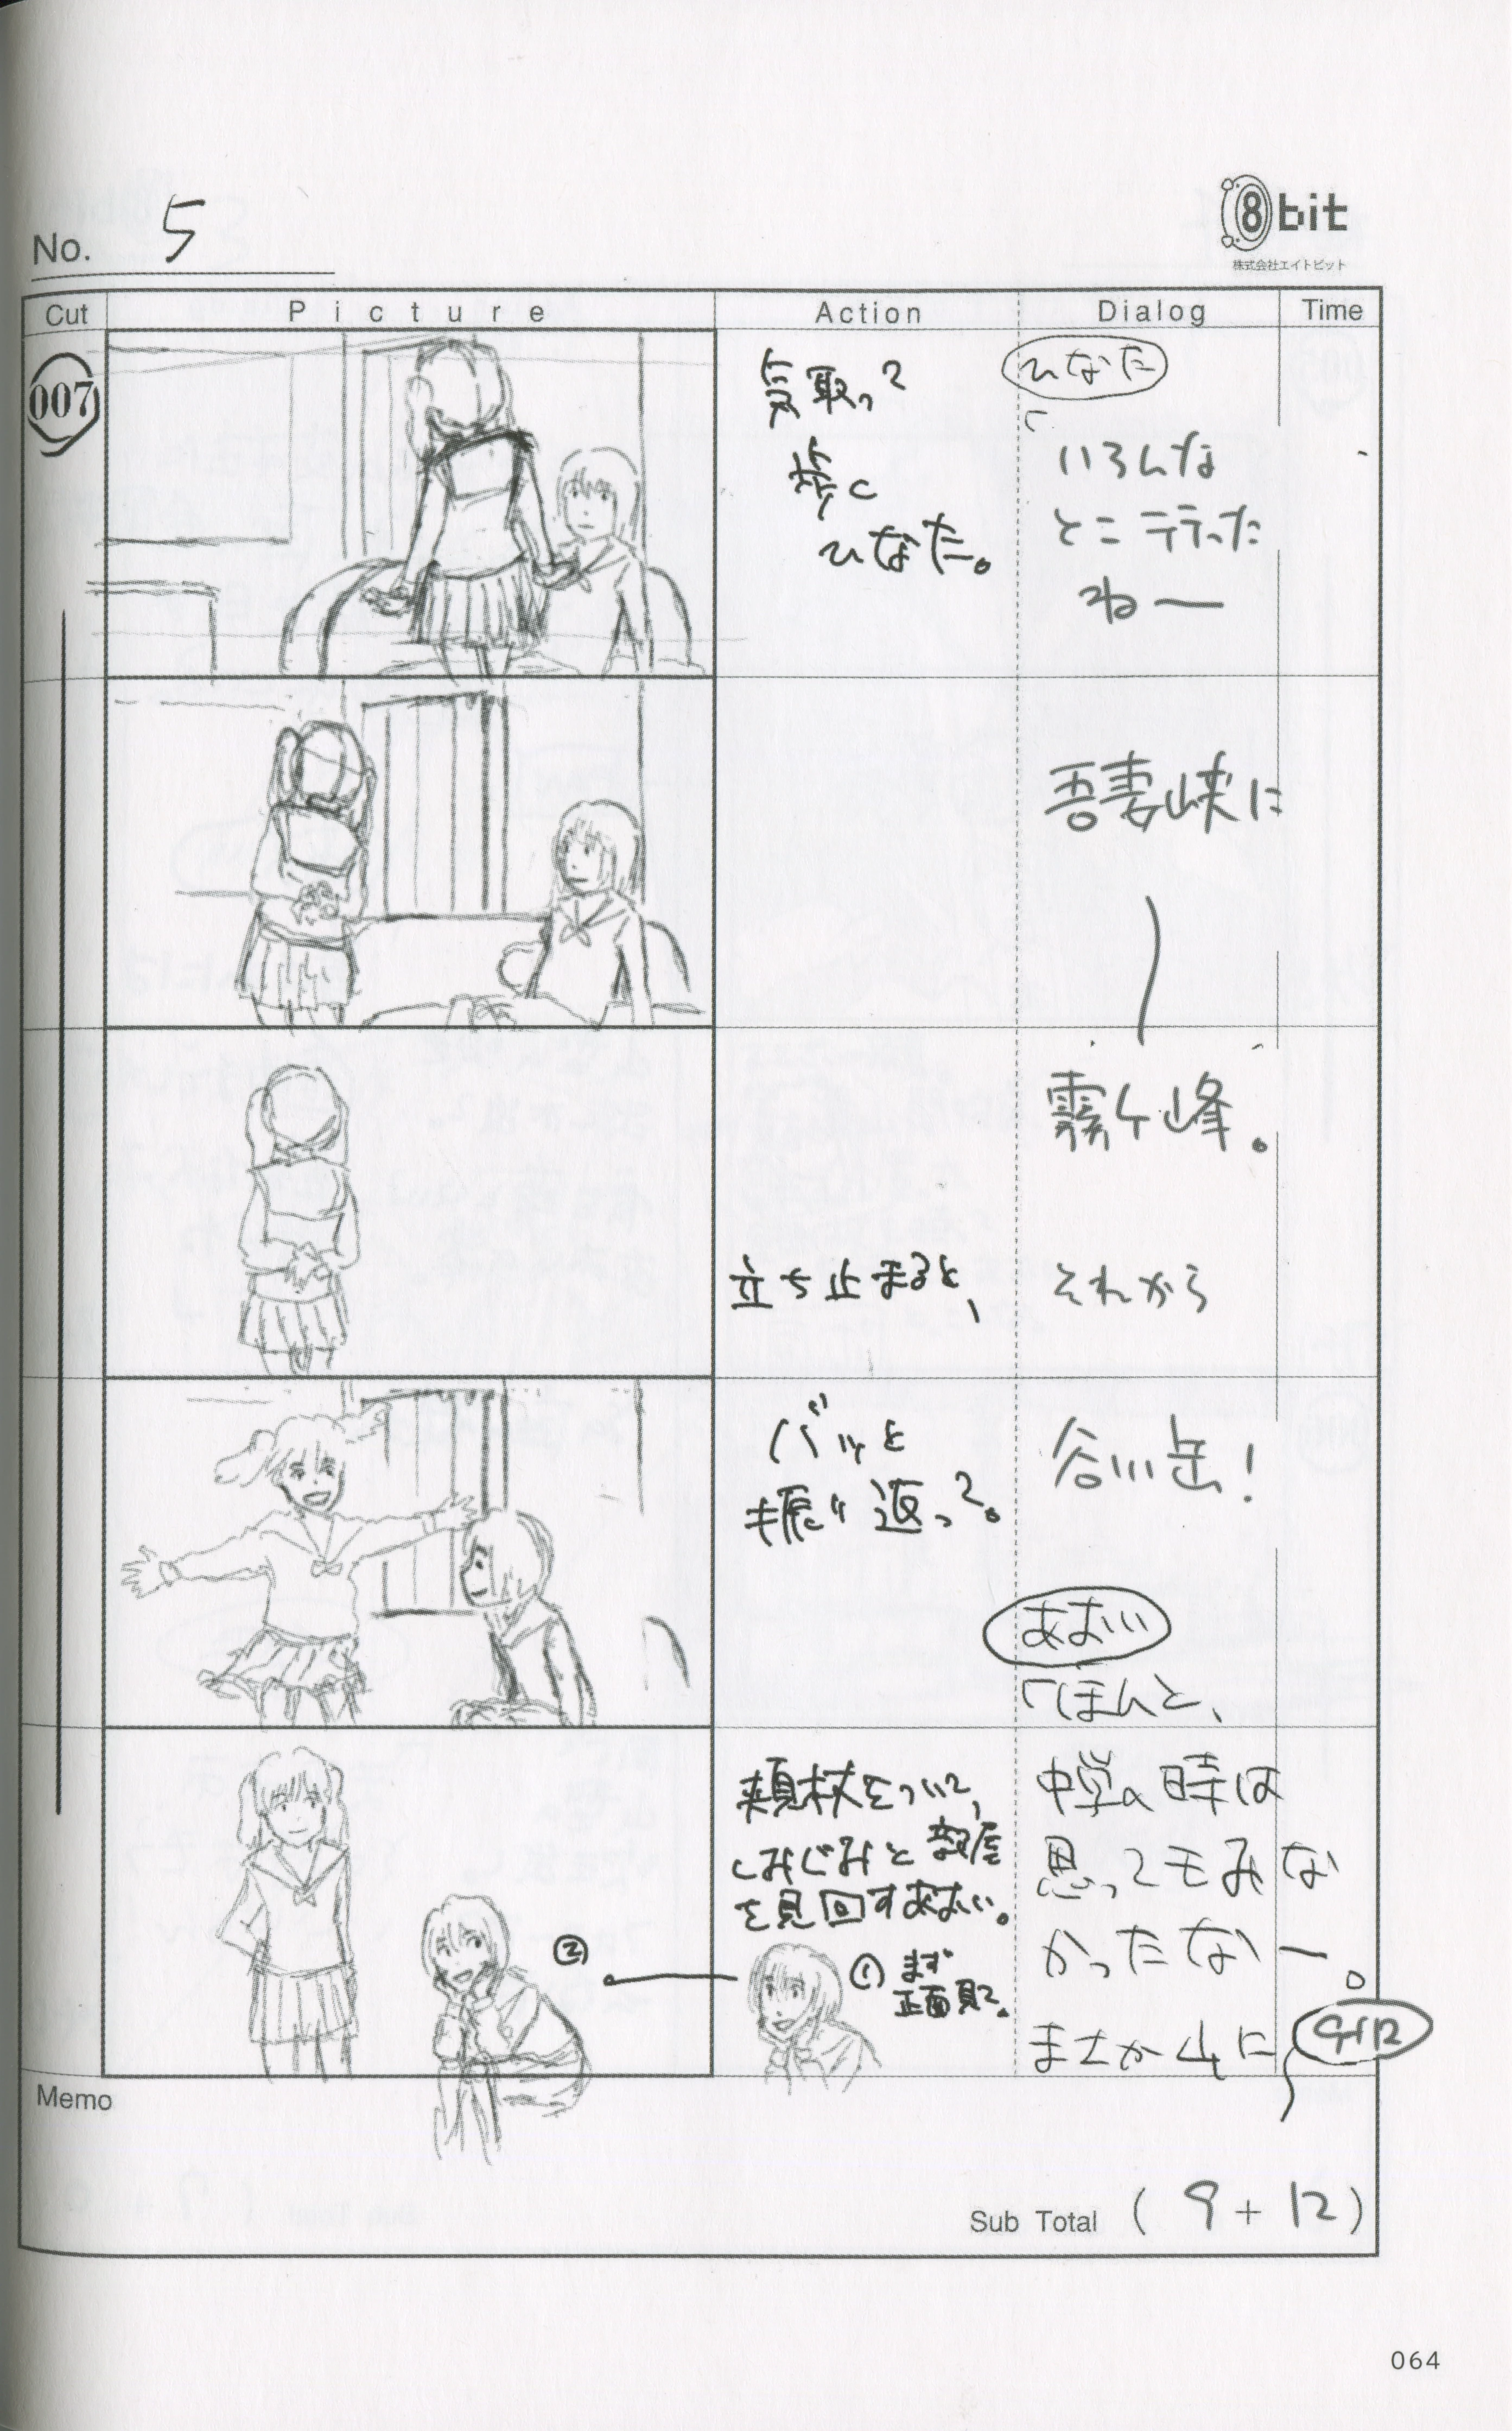 No. 5
8bit
株式会社エイトビット
Cut
Picture
Action
Dialog
Time
007
気取って
歩く
ひなた。
ひなた
「
いろんな
とこ行った
ねー
吾妻峡に
霧ケ峰。
立ち止まると、
それから
バッと
振り返って。
谷川岳!
あおい
「ほんと、
頬杖をついて、
しみじみと部屋
を見回すあおい。
① まず
正面見て。
②
中学の時は
思ってもみな
かったなー。
まさか山に
9+12
Memo
Sub Total ( 9 + 12 )
064